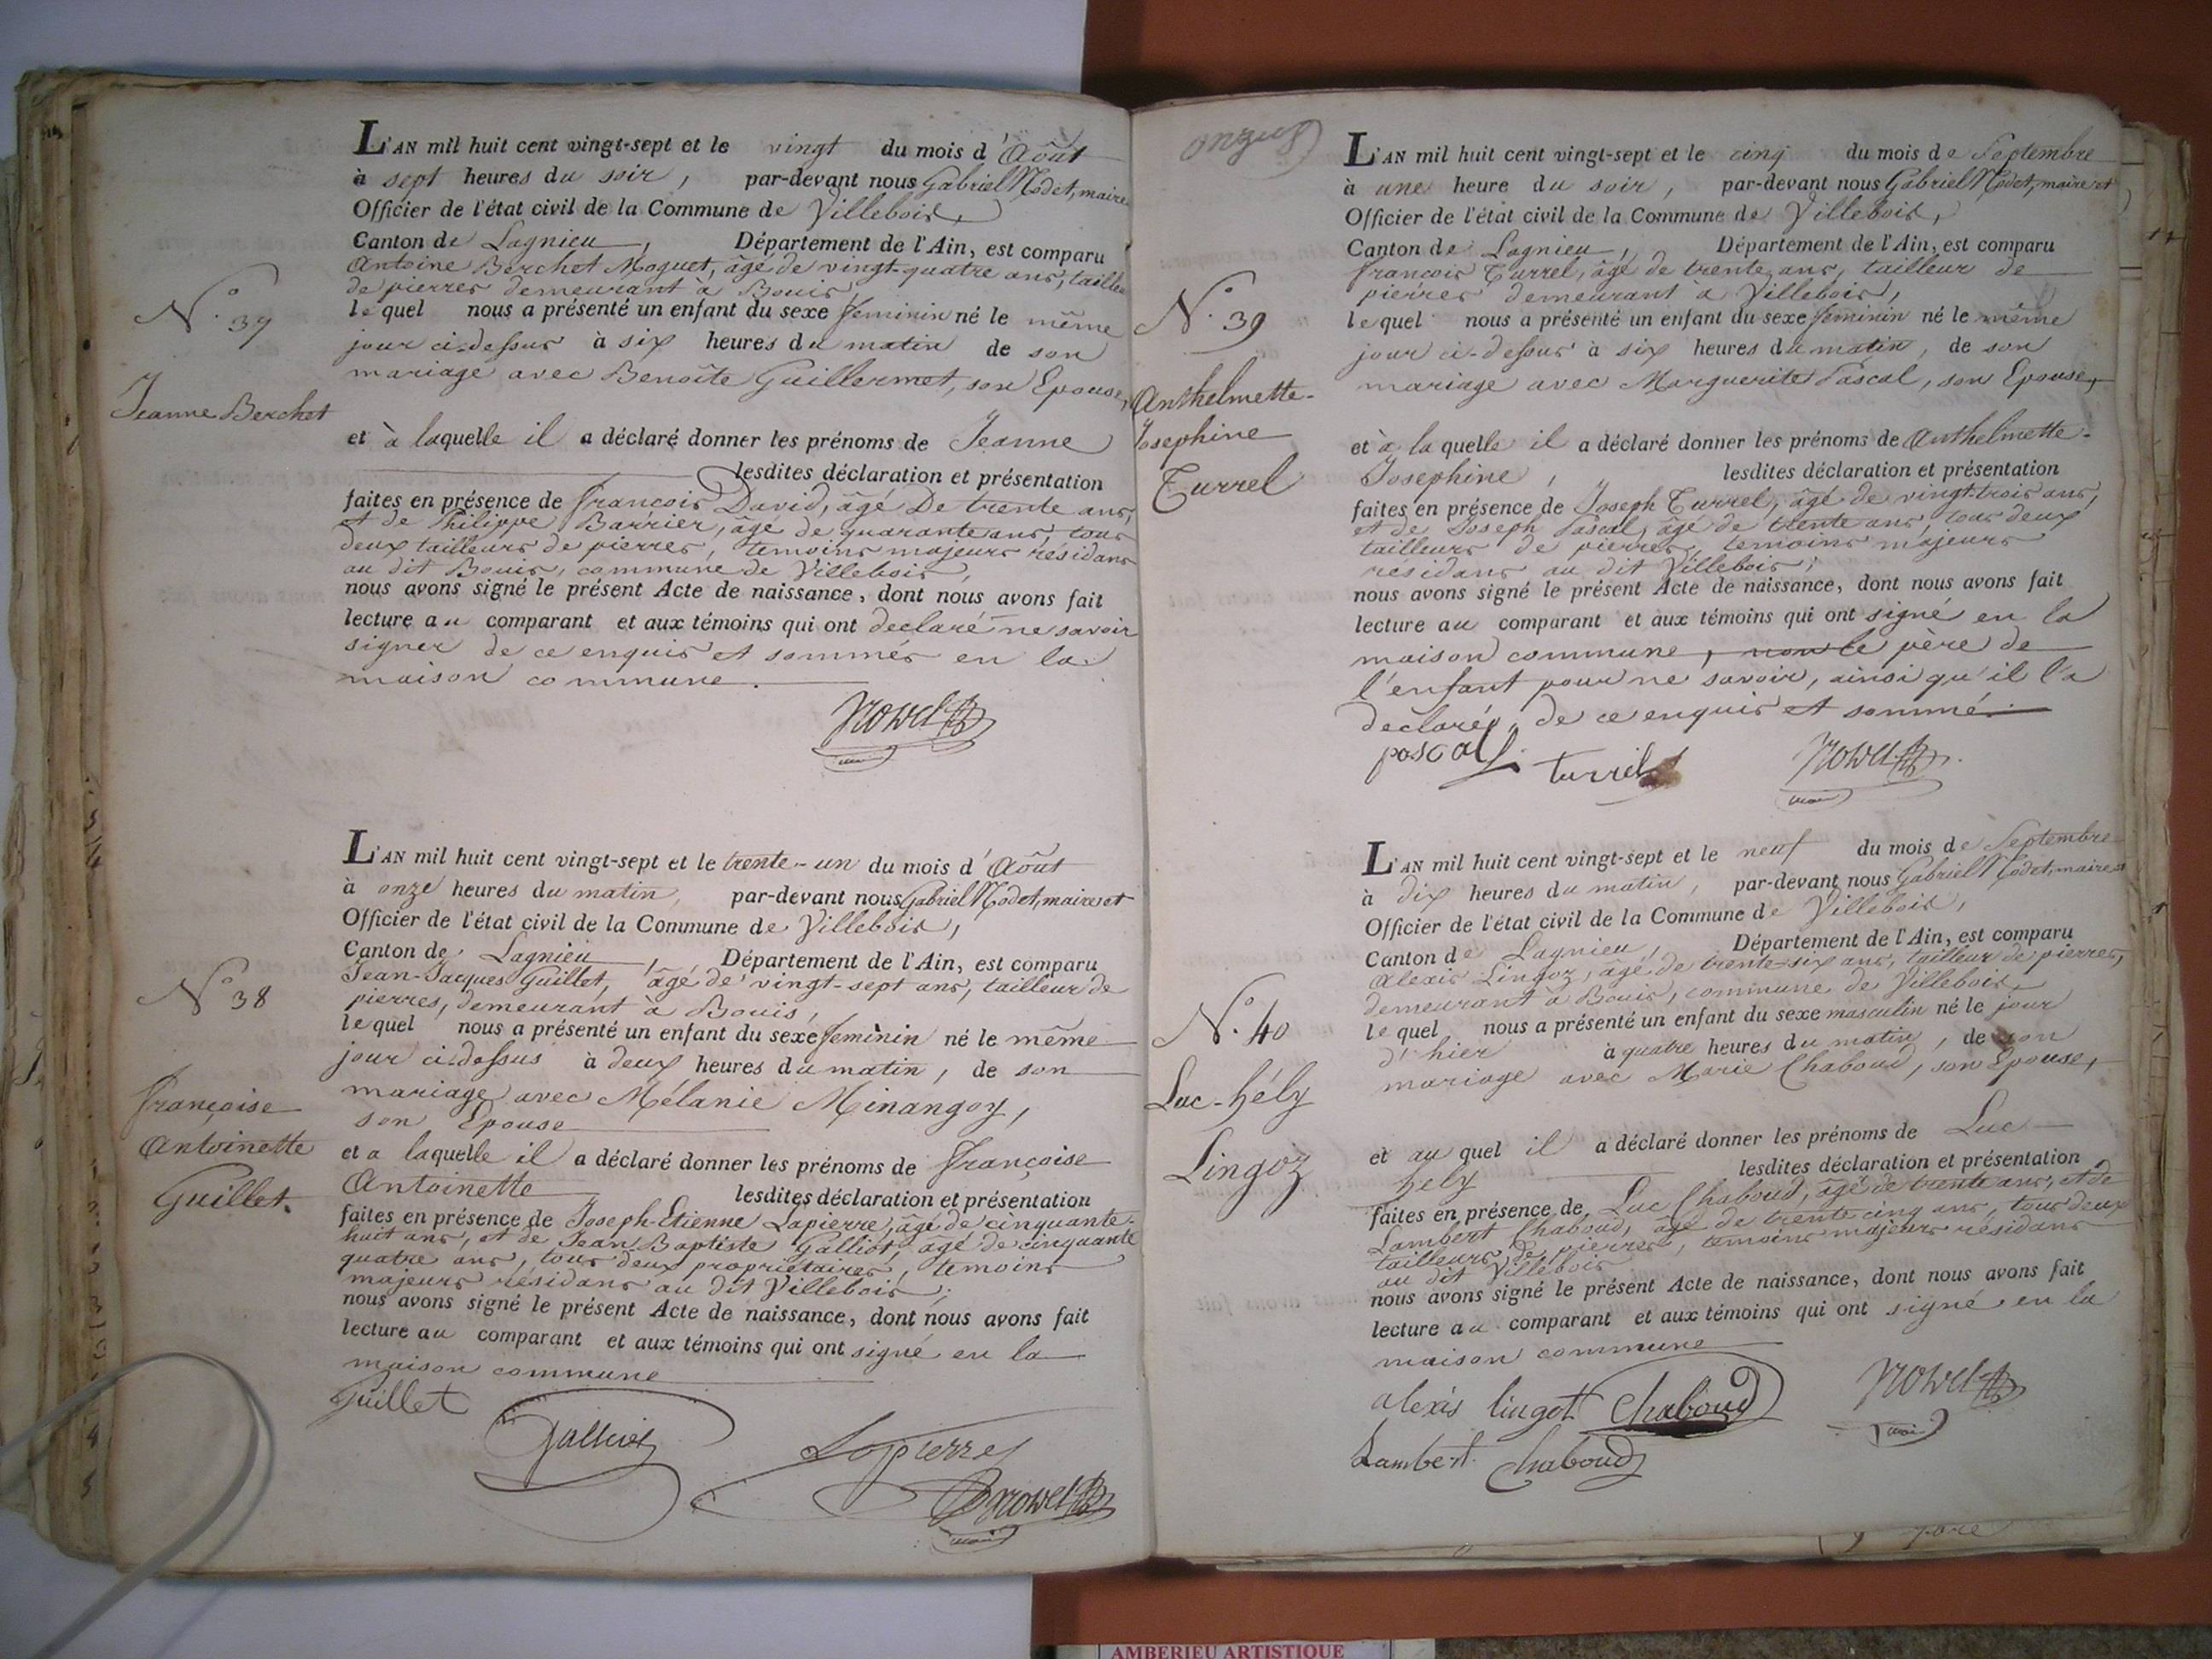 L'AN mil huit cent vingt-sept et le vingt du mois d'Août
à sept heures du soir, par-devant nous Gabriel Nodet, maire
Officier de l'état civil de la Commune de Villebois,
Canton de Lagnieu, Département de l'Ain, est comparu
Antoine Berchet Moquet, âgé de vingt-quatre ans, tailleur
de pierres demeurant à Bouis
lequel nous a présenté un enfant du sexe feminin né le même
jour ci-dessus à six heures du matin de son
mariage avec Benoîte Guillermet, son Epouse,
et à laquelle il a déclaré donner les prénoms de Jeanne
lesdites déclaration et présentation
faites en présence de françois David, âgé De trente ans,
et de Philippe Barrier, âgé de quarante ans, tous
deux tailleurs de pierres, temoins majeurs résidans
au dit Bouis, commune de Villebois,
nous avons signé le présent Acte de naissance, dont nous avons fait
lecture au comparant et aux témoins qui ont declaré ne savoir
signer de ce enquis et sommés en la
maison commune.
N.° 37
Jeanne Berchet
L'AN mil huit cent vingt-sept et le trente-un du mois d'Août
à onze heures du matin, par-devant nous Gabriel Nodet, maire et
Officier de l'état civil de la Commune de Villebois,
Canton de Lagnieu, Département de l'Ain, est comparu
Jean-Jacques Guillet, âgé de vingt-sept ans, tailleur de
pierres, demeurant à Bouis,
lequel nous a présenté un enfant du sexe feminin né le même
jour ci-dessus à deux heures du matin, de son
mariage avec Mélanie Minangoy,
son Epouse
et a laquelle il a déclaré donner les prénoms de françoise
Antoinette lesdites déclaration et présentation
faites en présence de Joseph-Etienne Lapierre, âgé de cinquante-
huit ans, et de Jean Baptiste Galliot, âgé de cinquante
quatre ans, tous deux propriétaires, temoins
majeurs résidans au dit Villebois;
nous avons signé le présent Acte de naissance, dont nous avons fait
lecture au comparant et aux témoins qui ont signé en la
maison commune
Guillet
Galliot
Lapierre
N° 38
françoise
Antoinette
Guillet.
L'AN mil huit cent vingt-sept et le cinq du mois de Septembre
à une heure du soir, par-devant nous Gabriel Nodet, maire et
Officier de l'état civil de la Commune de Villebois,
Canton de Lagnieu, Département de l'Ain, est comparu
françois Turrel, âgé de trente ans, tailleur de
pierres demeurant à Villebois,
lequel nous a présenté un enfant du sexe feminin né le même
jour ci-dessus à six heures du matin, de son
mariage avec Marguerite Pascal, son Epouse,
et à la quelle il a déclaré donner les prénoms de Anthelmette-
Josephine, lesdites déclaration et présentation
faites en présence de Joseph Turrel, âgé de vingt-trois ans,
et de Joseph Pascal, âgé de trente ans, tous deux
tailleurs de pierres, temoins majeurs
résidans au dit Villebois;
nous avons signé le présent Acte de naissance, dont nous avons fait
lecture au comparant et aux témoins qui ont signé en la
maison commune, non le père de
l'enfant pour ne savoir, ainsi qu'il l'a
declaré, de ce enquis et sommé.
pascal turrel
N.° 39
Anthelmette-
Josephine
Turrel
L'AN mil huit cent vingt-sept et le neuf du mois de Septembre
à dix heures du matin, par-devant nous Gabriel Nodet, maire et
Officier de l'état civil de la Commune de Villebois,
Canton de Lagnieu, Département de l'Ain, est comparu
Alexis Lingoz, âgé de trente-six ans, tailleur de pierres,
demeurant à Bouis, commune de Villebois,
lequel nous a présenté un enfant du sexe masculin né le jour
d'hier à quatre heures du matin, de son
mariage avec Marie Chaboud, son Epouse,
et au quel il a déclaré donner les prénoms de Luc
hely lesdites déclaration et présentation
faites en présence de Luc Chaboud, âgé de trente ans, et de
Lambert Chaboud, âgé de trente cinq ans, tous deux
tailleurs de pierres, temoins majeurs résidans
au dit Villebois
nous avons signé le présent Acte de naissance, dont nous avons fait
lecture au comparant et aux témoins qui ont signé en la
maison commune
alexis lingot Chaboud
Lambert Chaboud
N.° 40
Luc-hély
Lingoz
AMBERIEU ARTISTIQUE